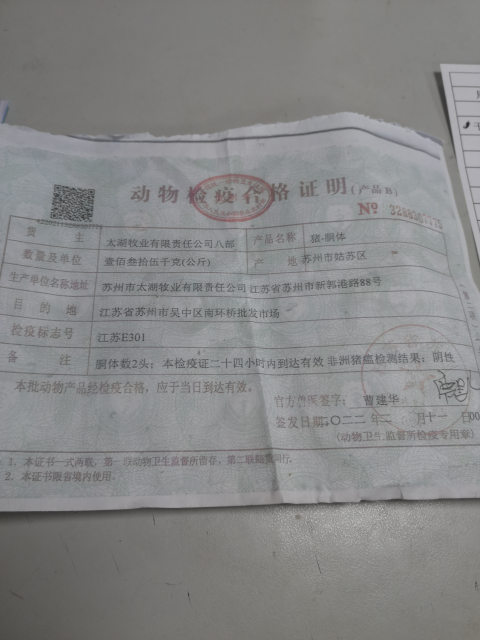 动物检疫合格证明(产品B)
№
货主 太湖牧业有限责任公司八部 产品名称 猪-胴体
数量及单位 壹佰叁拾伍千克(公斤) 产地 苏州市姑苏区
生产单位名称地址 苏州市太湖牧业有限责任公司 江苏省苏州市新郭港路88号
目的地 江苏省苏州市吴中区南环桥批发市场
检疫标志号 江苏E301
备注 胴体数2头; 本检疫证二十四小时内到达有效 非洲猪瘟检测结果: 阴性
本批动物产品经检疫合格,应于当日到达有效。
官方兽医签字: 曹建华
签发日期: 二〇二二年二月十一日
(动物卫生监督所检疫专用章)
1. 本证书一式两联,第一联动物卫生监督所留存,第二联随货同行。
2. 本证书限省境内使用。